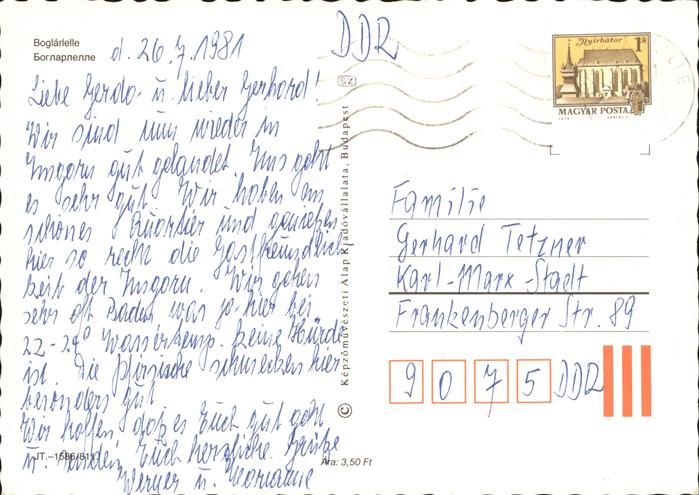 Boglárlelle
Богларлелле
d. 26.7.1981
Liebe Gerda u. lieber Gerhard!
Wir sind nun wieder in
Ungarn gut gelandet. Uns geht
es sehr gut. Wir haben ein
schönes Quartier und geniessen
hier so recht die Gastfreundlich
keit der Ungarn. Wir gehen
sehr oft Baden was ja hier bei
22-24° Wassertemp. keine Hürde
ist. Die Pfirsische schmecken hier
besonders gut
Wir hoffen, daß es Euch gut geht
u. senden Euch herzliche Grüße
Werner u. Marianne
JT.–1586/811
Ára: 3,50 Ft
SZ
© Képzőművészeti Alap Kiadóvállalata, Budapest
DDR
Nyírbátor
1 Ft
MAGYAR POSTA
Familie
Gerhard Tetzner
Karl-Marx-Stadt
Frankenberger Str. 89
9075 DDR